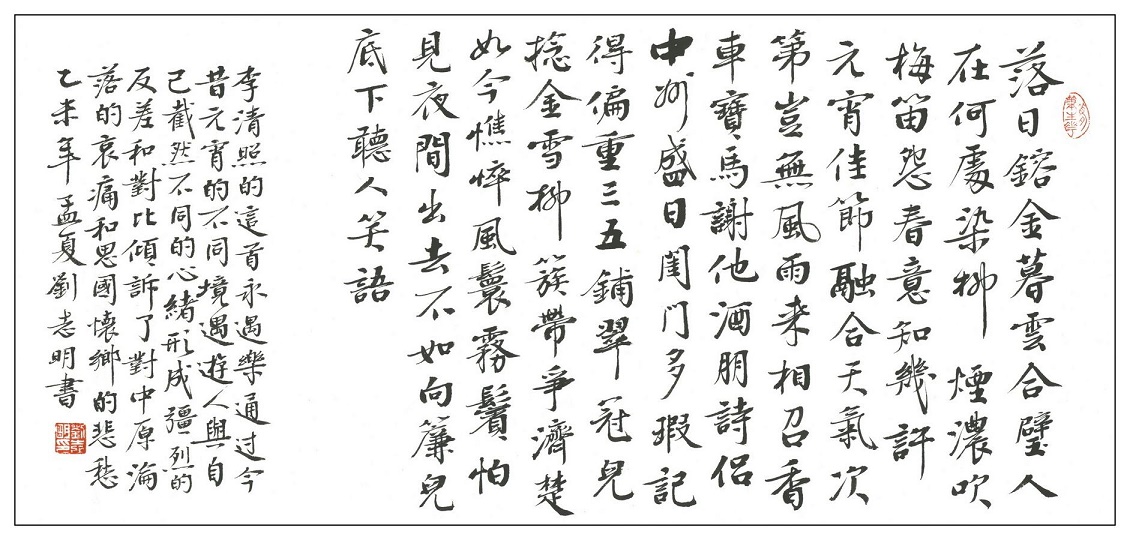 落日鎔金暮雲合璧人
在何處染柳煙濃吹
梅笛怨春意知幾許
元宵佳節融合天氣次
第豈無風雨来相召香
車寶馬謝他酒朋詩侶
中州盛日閨门多瑕記
得偏重三五鋪翠冠兒
捻金雪柳簇帶爭濟楚
如今憔悴風鬟霧鬢怕
見夜間出去不如向簾兒
底下聽人笑語
李清照的這首永遇樂通过今
昔元宵的不同境遇遊人與自
己截然不同的心緒形成彊烈的
反差和對比傾訴了對中原淪
落的哀痛和思國懷鄉的悲愁
乙未年孟夏劉志明書